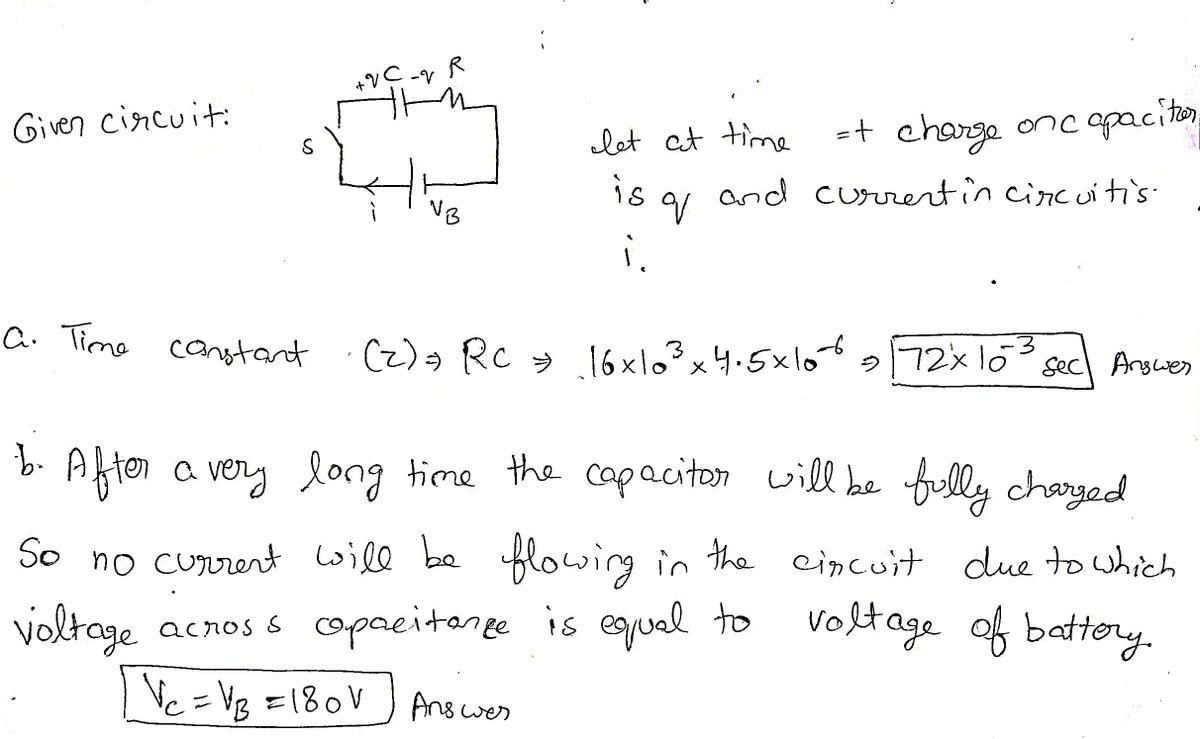 Given circuit:
+q C -q R
S
i VB
let at time =t charge on capacitor
is q and current in circuit is
i.
a. Time constant (τ) ⇒ RC ⇒ 16x10³ x 4.5x10⁻⁶ ⇒ 72x10⁻³ sec Answer
b. After a very long time the capacitor will be fully charged
So no current will be flowing in the circuit due to which
voltage across capacitance is equal to voltage of battery.
Vc = VB = 180V Answer